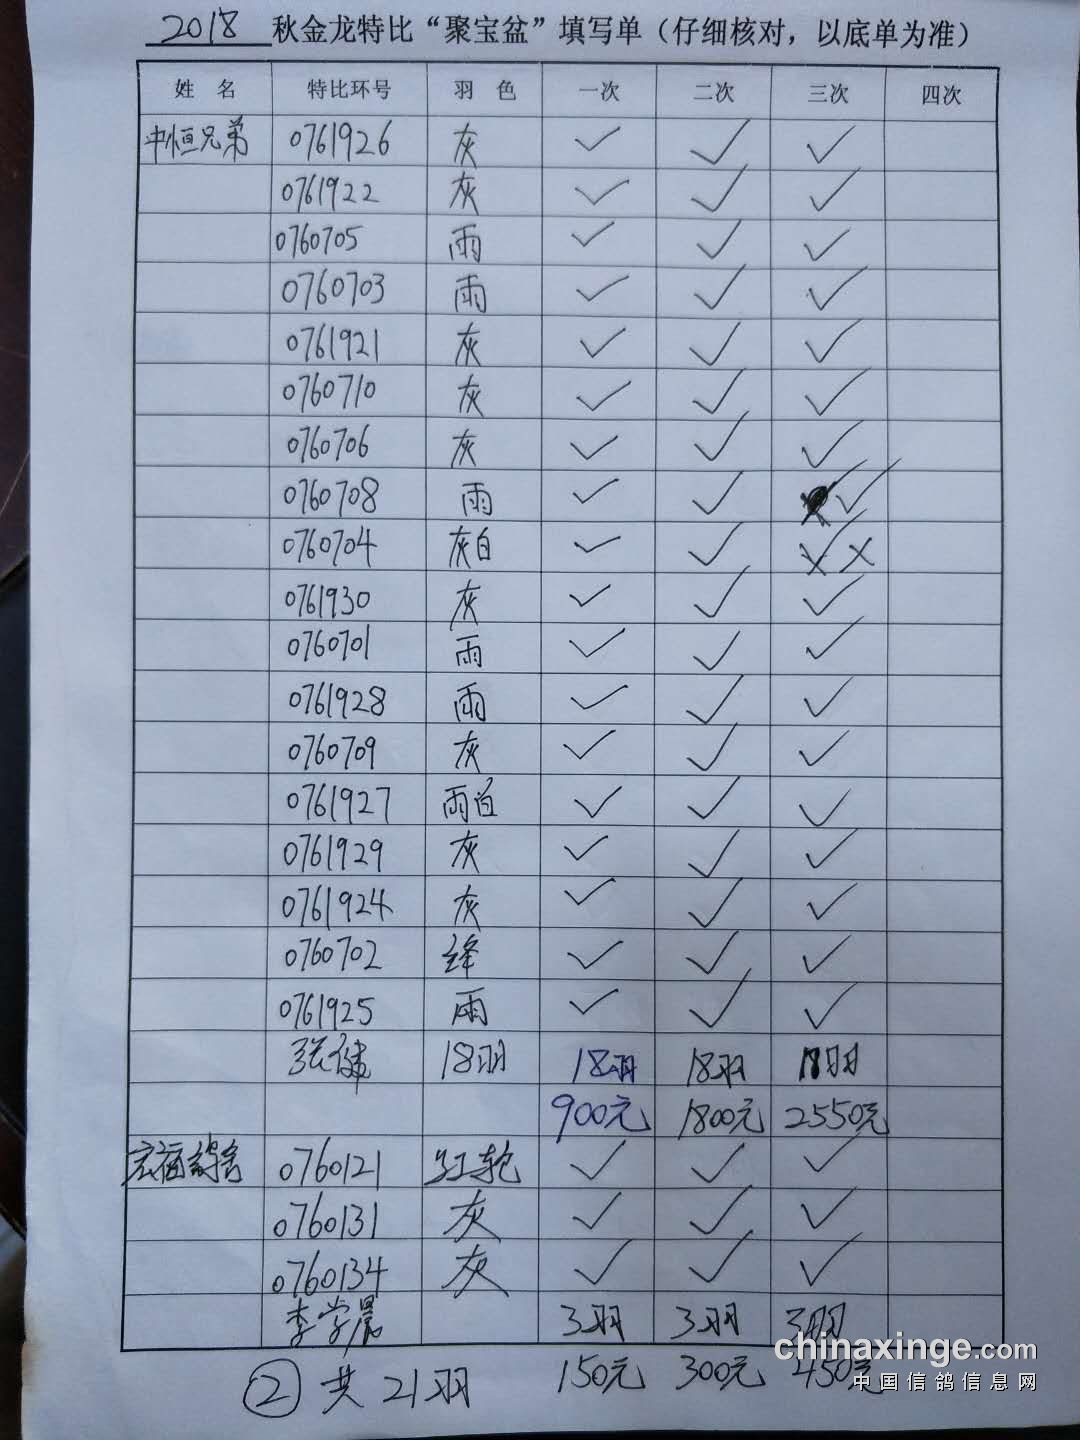 2018 秋金龙特比“聚宝盆”填写单（仔细核对，以底单为准）
姓 名 特比环号 羽 色 一次 二次 三次 四次
中恒兄弟 0761926 灰 ✓ ✓ ✓
0761922 灰 ✓ ✓ ✓
0760705 雨 ✓ ✓ ✓
0760703 雨 ✓ ✓ ✓
0761921 灰 ✓ ✓ ✓
0760710 灰 ✓ ✓ ✓
0760706 灰 ✓ ✓ ✓
0760708 雨 ✓ ✓ ✓
0760704 灰白 ✓ ✓ ×
0761930 灰 ✓ ✓ ✓
0760701 雨 ✓ ✓ ✓
0761928 雨 ✓ ✓ ✓
0760709 灰 ✓ ✓ ✓
0761927 雨白 ✓ ✓ ✓
0761929 灰 ✓ ✓ ✓
0761924 灰 ✓ ✓ ✓
0760702 绛 ✓ ✓ ✓
0761925 雨 ✓ ✓ ✓
张健 18羽 18羽 18羽 羽
900元 1800元 2550元
宏福鸽舍 0760121 红轮 ✓ ✓ ✓
0760131 灰 ✓ ✓ ✓
0760134 灰 ✓ ✓ ✓
李学晨 3羽 3羽 3羽
150元 300元 450元
② 共21羽
chinaxinge.com
中国信鸽信息网